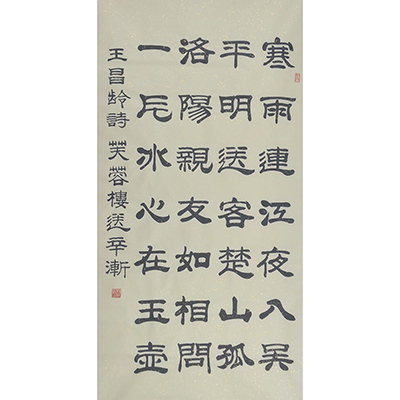 寒雨連江夜入吴
平明送客楚山孤
洛陽親友如相問
一片冰心在玉壺
王昌龄詩 芙蓉樓送辛漸